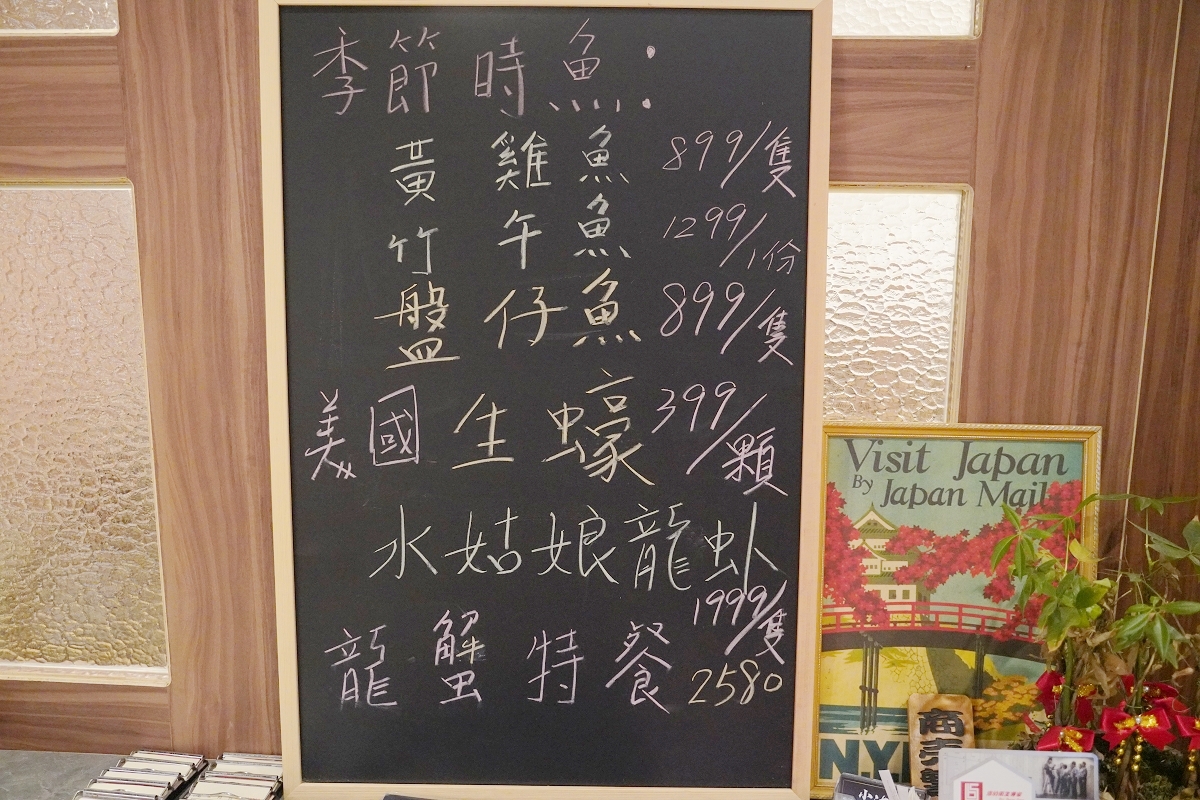 季節時魚:
黃雞魚 899/隻
竹午魚 1299/1份
盤仔魚 899/隻
美國生蠔 399/顆
水姑娘龍虾
1999/隻
龍蟹特餐 2580
Visit Japan
By Japan Mail
NYK